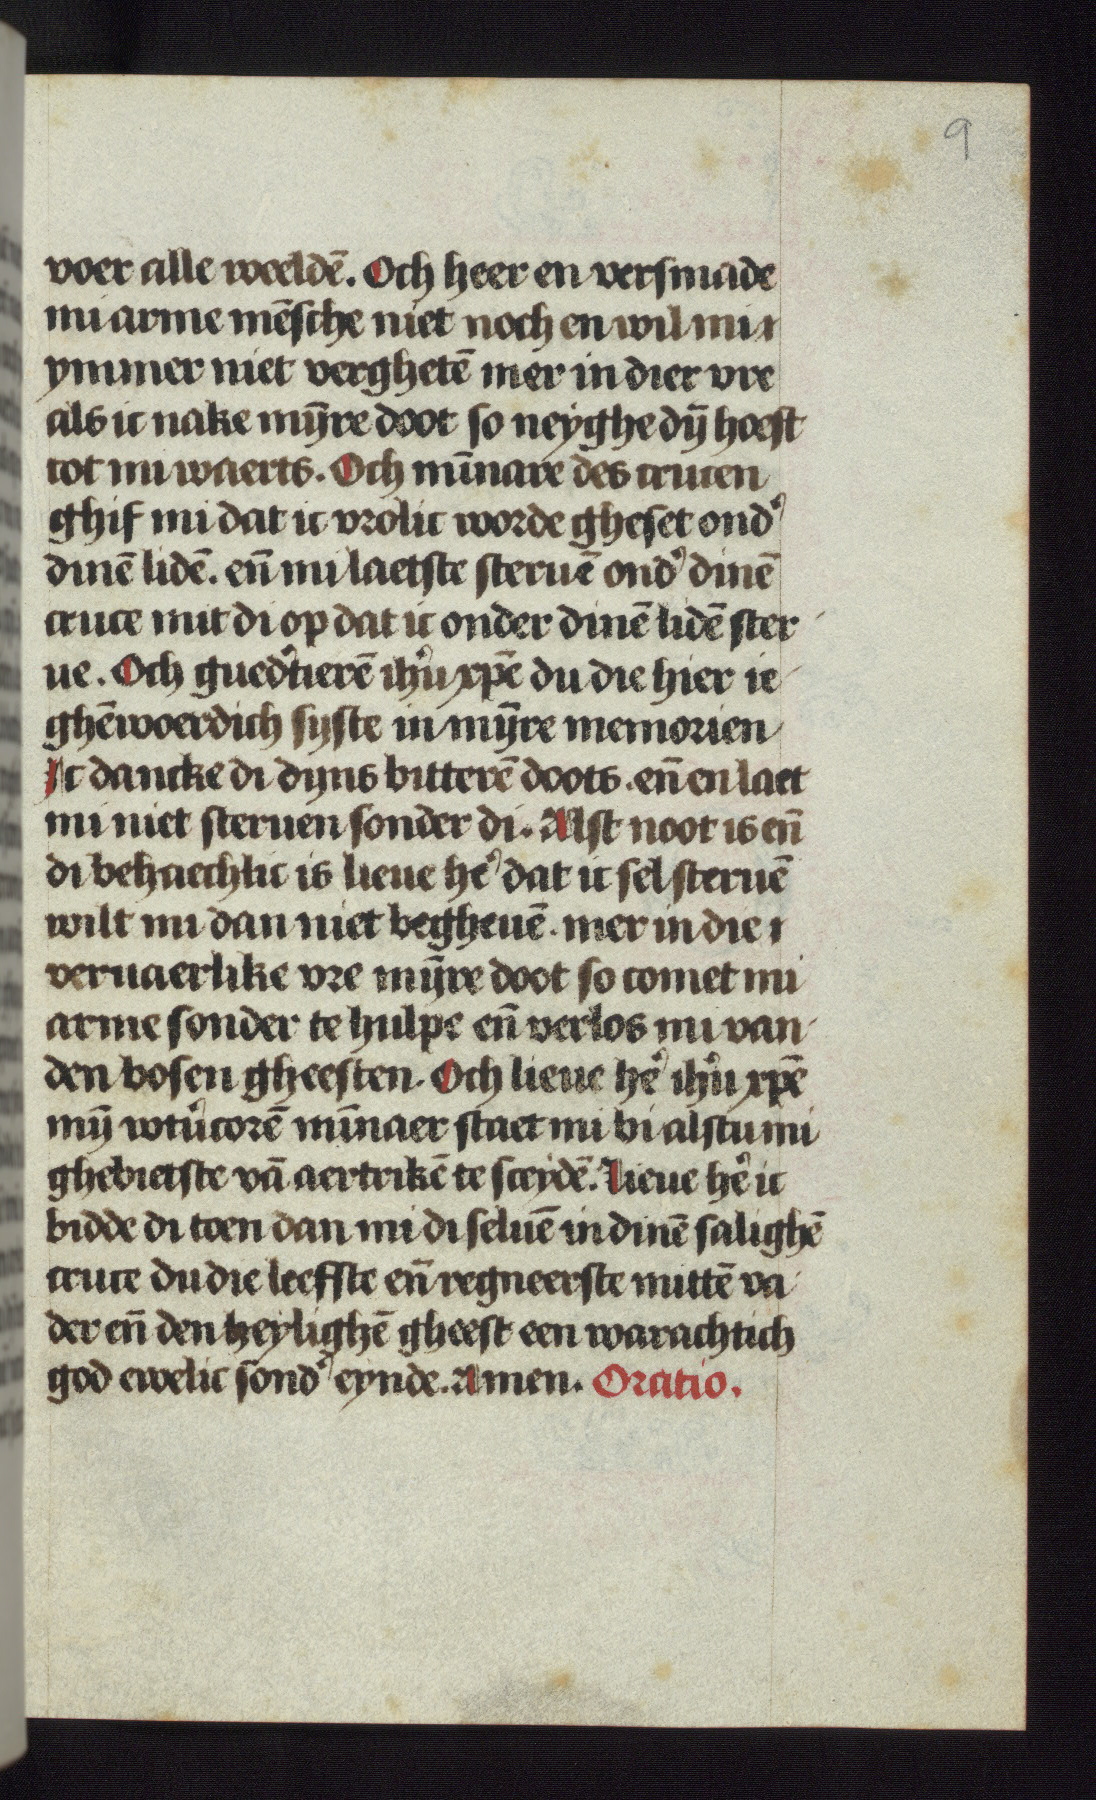 9
voer alle weeldē. Och heer en versmade
mi arme mēsche niet noch en wil mi
ymmer niet verghetē mer in dier vre
als ic nake mȳre doot so neyghe dȳ hoeft
tot mi waerts. Och mīnare des crucen
ghif mi dat ic vrolic worde gheset ond᾽
dinē lidē. eñ mi laetste steruē ond᾽ dinē
cruce mit di op dat ic onder dinē lidē ster
ue. Och gued᾽tierē ih᾽u xp̄e du die hier ie
ghēwoerdich syste in mȳre memorien
Ic dancke di dyns bitterē doots. eñ en laet
mi niet steruen sonder di. Alst noot is eñ
di behaechlic is lieue he᾽ dat ic sel steruē
wilt mi dan niet begheuē. mer in die
veruaerlike vre mȳre doot so comet mi
arme sonder te hulpe eñ verlos mi van
den bosen gheesten. Och lieue he᾽ ih᾽u xp̄e
mȳ wtu᾽corē mīnaer staet mi bi alstu mi
ghebietste vā aertrikē te sceydē. Lieue he᾽ ic
bidde di toen dan mi di seluē in dinē salighē
cruce du die leeffste eñ regneerste mittē va
der eñ den heylighē gheest een warachtich
god ewelic sond᾽ eynde. Amen. Oratio.